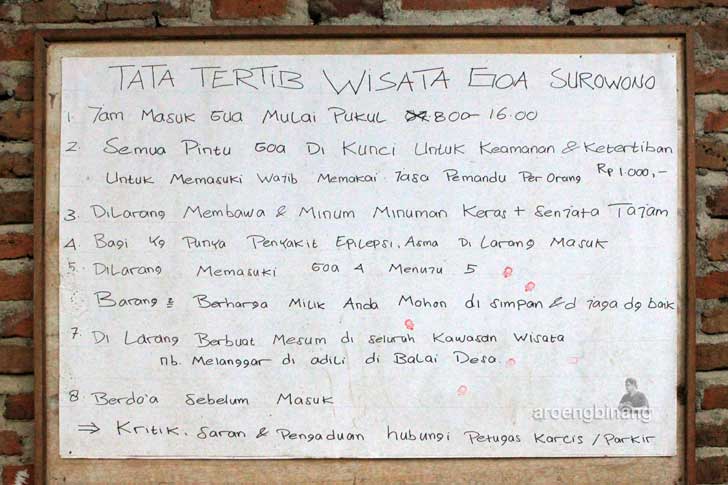 TATA TERTIB WISATA GOA SUROWONO
1. Jam Masuk Gua Mulai Pukul 800 - 16.00
2. Semua Pintu Goa Di Kunci Untuk Keamanan & Ketertiban
Untuk Memasuki Wajib Memakai Jasa Pemandu Per Orang Rp 1.000,-
3. DiLarang Membawa & Minum Minuman Keras + Senjata Tajam
4. Bagi Yg Punya Penyakit Epilepsi, Asma Di Larang Masuk
5. DiLarang Memasuki Goa 4 Menuju 5
Barang2 Berharga Milik Anda Mohon di simpan & d jaga dg baik
7. Di Larang Berbuat Mesum di seluruh Kawasan Wisata
nb. Melanggar di adili di Balai Desa.
8. Berdo'a Sebelum Masuk
aroengbinang
⇒ Kritik. Saran & Pengaduan hubungi Petugas Karcis / Parkir